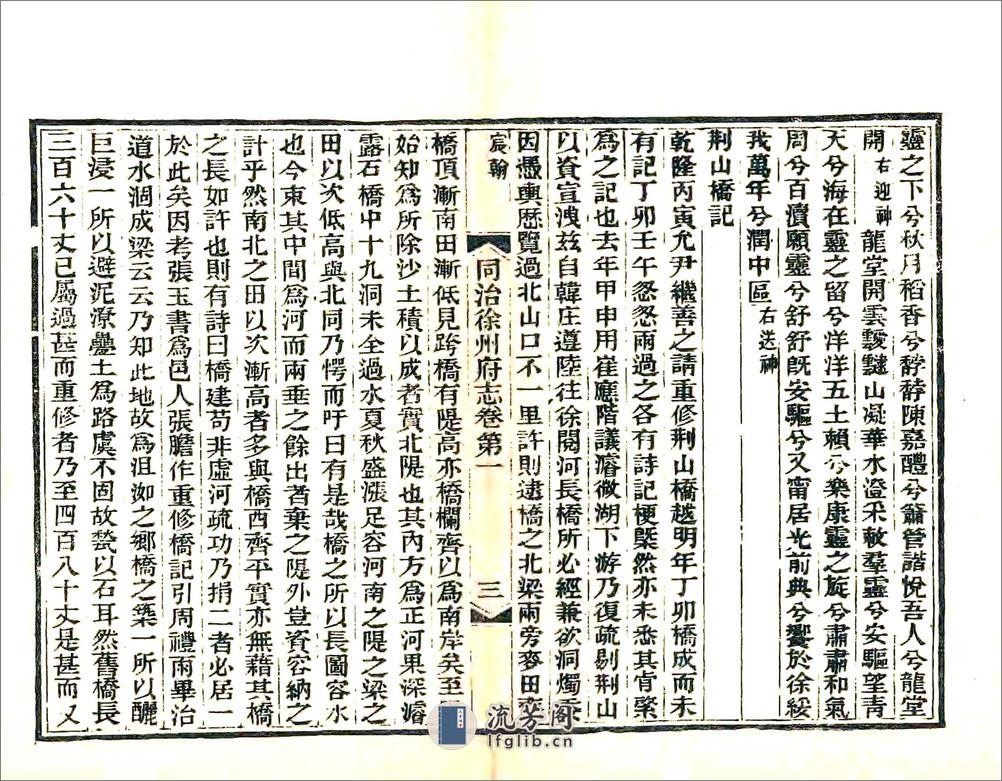 靈之下兮秋月稻香兮馞馞陳嘉醴兮簫管諧悅吾人兮龍堂
開右迎神龍堂開雲靉靆山凝華水澄采敕羣靈兮安驅望青
天兮海在靈之留兮洋洋五土賴兮樂康靈之旋兮肅肅和氣
周兮百瀆願靈兮舒舒旣安驅兮又甯居光前典兮饗於徐綏
我萬年兮潤中區右送神
荆山橋記
乾隆丙寅允尹繼善之請重修荆山橋越明年丁卯橋成而未
有記丁卯壬午怱怱兩過之各有詩記梗槩然亦未悉其肯綮
爲之記也去年甲申用崔應階議濬微湖下游乃復疏剔荆山
以資宣洩茲自韓庄遵陸往徐閱河長橋所必經兼欲洞燭
因憑輿歷覽過北山口不一里許則逮橋之北梁兩旁麥田
宸翰
同治徐州府志卷第一
三
橋頂漸南田漸低見跨橋有隄高亦橋欄齊以爲南岸矣至
始知爲所除沙土積以成者實北隄也其內方爲正河果深濬
露石橋中十九洞未全過水夏秋盛漲足容河南之隄之梁之
田以次低高與北同乃愕而吁曰有是哉橋之所以長圖容水
也今束其中間爲河而兩垂之餘出者棄之隄外豈資容納之
計乎然南北之田以次漸高者多與橋面齊平實亦無藉其橋
之長如許也則有詩曰橋建苟非虛河疏功乃捐二者必居一
於此矣因考張玉書爲邑人張膽作重修橋記引周禮雨畢治
道水涸成梁云云乃知此地故爲沮洳之鄉橋之築一所以釃
巨浸一所以避泥潦壘土爲路虞不固故甃以石耳然舊橋長
三百六十丈已屬過甚而重修者乃至四百八十丈是甚而又
流芳閣
lfglib.cn